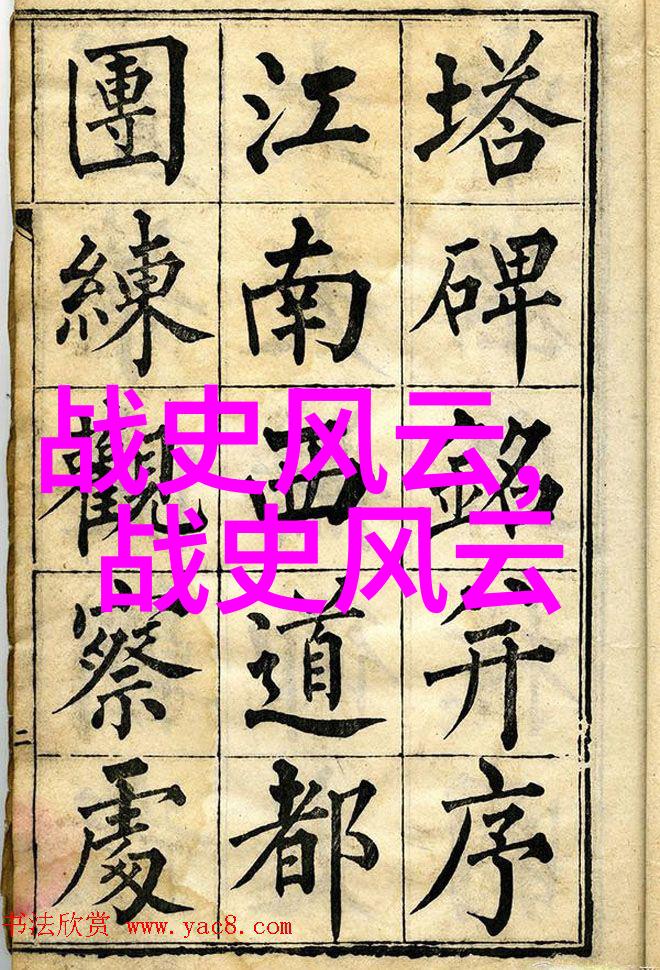 塔碑銘并序
江南西道都
團練觀察處
二
战史风云,
战史风云
书法欣赏 www.yac8.com